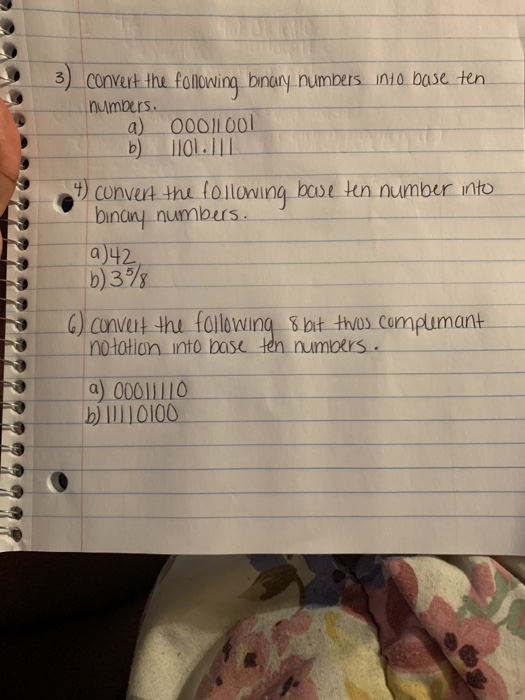 3) convert the following binary numbers into base ten
numbers.
a) 00011001
b) 1101.111
4) convert the following base ten number into
binary numbers.
a) 42
b) 3 5/8
6) convert the following 8 bit twos complemant
notation into base ten numbers.
a) 00011110
b) 11110100